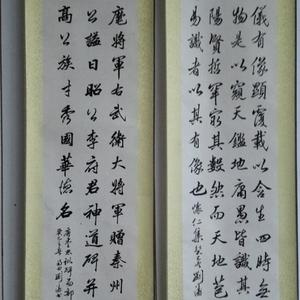 儀有像顯覆載以含生四時無
物是以窺天鑑地庸愚皆識其
陽賢哲罕窮其數然而天地苞
易識者以其有像也 懷仁集
麾將軍右武衛大將軍贈秦州
公諡曰昭公李府君神道碑并
高公族才秀國華德名
唐李思訓碑局部